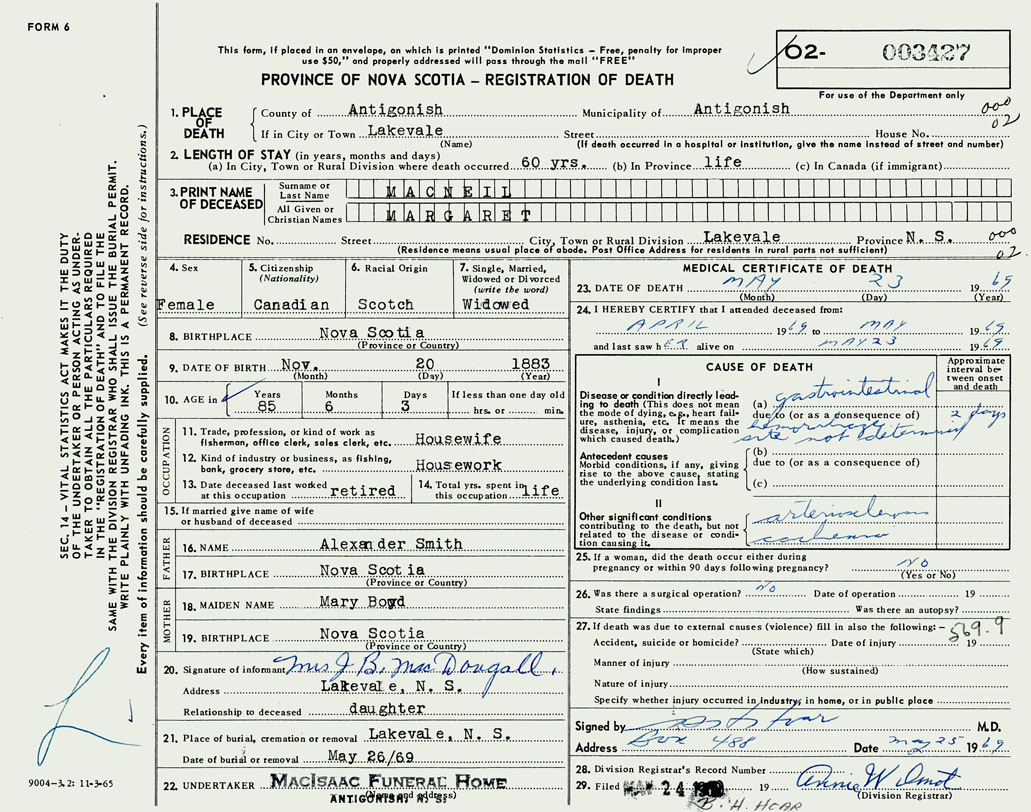 FORM 6
This form, if placed in an envelope, on which is printed "Dominion Statistics – Free, penalty for improper
use $50," and properly addressed will pass through the mail "FREE"
PROVINCE OF NOVA SCOTIA – REGISTRATION OF DEATH
O2- 003427
For use of the Department only
1. PLACE OF DEATH
County of Antigonish Municipality of Antigonish 000
If in City or Town Lakevale Street House No. 02
(Name) (If death occurred in a hospital or institution, give the name instead of street and number)
2. LENGTH OF STAY (in years, months and days)
(a) In City, Town or Rural Division where death occurred 60 yrs. (b) In Province life (c) In Canada (if immigrant)
3. PRINT NAME OF DECEASED
Surname or Last Name MACNEIL
All Given or Christian Names MARGARET
RESIDENCE No. Street City, Town or Rural Division Lakevale Province N. S. 000
(Residence means usual place of abode. Post Office Address for residents in rural parts not sufficient) 02
4. Sex
Female
5. Citizenship
(Nationality)
Canadian
6. Racial Origin
Scotch
7. Single, Married,
Widowed or Divorced
(write the word)
Widowed
8. BIRTHPLACE Nova Scotia
(Province or Country)
9. DATE OF BIRTH Nov. 20 1883
(Month) (Day) (Year)
10. AGE in Years Months Days If less than one day old
85 6 3 hrs. or min.
OCCUPATION
11. Trade, profession, or kind of work as
fisherman, office clerk, sales clerk, etc. Housewife
12. Kind of industry or business, as fishing,
bank, grocery store, etc. Housework
13. Date deceased last worked
at this occupation retired
14. Total yrs. spent in
this occupation life
15. If married give name of wife
or husband of deceased
FATHER
16. NAME Alexander Smith
17. BIRTHPLACE Nova Scotia
(Province or Country)
MOTHER
18. MAIDEN NAME Mary Boyd
19. BIRTHPLACE Nova Scotia
(Province or Country)
20. Signature of informant Mrs J. B. MacDougall,
Address Lakevale, N. S.
Relationship to deceased daughter
21. Place of burial, cremation or removal Lakevale, N. S.
Date of burial or removal May 26/69
22. UNDERTAKER MacIsaac Funeral Home
(Name and address)
ANTIGONISH, N. S.
MEDICAL CERTIFICATE OF DEATH
23. DATE OF DEATH MAY 23 1969
(Month) (Day) (Year)
24. I HEREBY CERTIFY that I attended deceased from:
APRIL 1969 to MAY 1969
and last saw hER alive on MAY 23 1969
CAUSE OF DEATH
Approximate
interval be-
tween onset
and death
I
Disease or condition directly lead-
ing to death (This does not mean
the mode of dying, e.g., heart fail-
ure, asthenia, etc. It means the
disease, injury, or complication
which caused death.)
(a) gastrointestinal
due to (or as a consequence of) 2 days
hemorrhage
site not determined
Antecedent causes
Morbid conditions, if any, giving
rise to the above cause, stating
the underlying condition last.
(b)
due to (or as a consequence of)
(c)
II
Other significant conditions
contributing to the death, but not
related to the disease or condi-
tion causing it.
arteriosclerosis
25. If a woman, did the death occur either during
pregnancy or within 90 days following pregnancy? NO
(Yes or No)
26. Was there a surgical operation? no Date of operation 19
State findings Was there an autopsy?
27. If death was due to external causes (violence) fill in also the following: – 569.9
Accident, suicide or homicide? Date of injury 19
(State which)
Manner of injury
(How sustained)
Nature of injury
Specify whether injury occurred in industry, in home, or in public place
Signed by M.D.
Address Box 488 Date May 25 1969
28. Division Registrar's Record Number
29. Filed MAY 24 19
(Division Registrar)
SEC. 14 – VITAL STATISTICS ACT MAKES IT THE DUTY
OF THE UNDERTAKER OR PERSON ACTING AS UNDER-
TAKER TO OBTAIN ALL THE PARTICULARS REQUIRED
IN THE "REGISTRATION OF DEATH" AND TO FILE THE
SAME WITH THE DIVISION REGISTRAR WHO SHALL ISSUE THE BURIAL PERMIT.
WRITE PLAINLY WITH UNFADING INK. THIS IS A PERMANENT RECORD.
Every item of information should be carefully supplied. (See reverse side for instructions.)
9004-3.2: 11-3-65